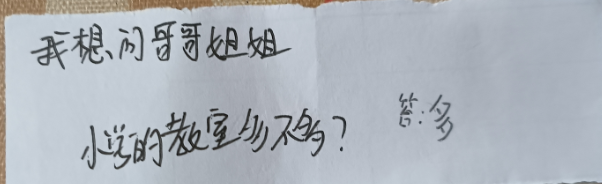 我想问哥哥姐姐
小学的教室多不多？ 答:多